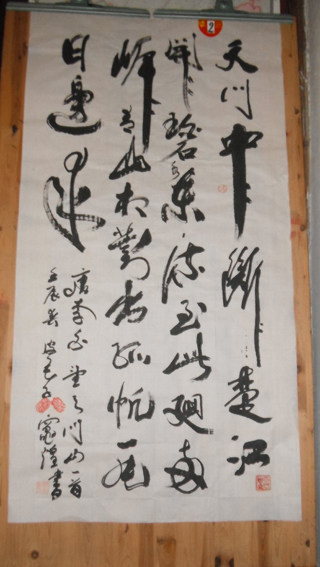 天门中断楚江
開碧水东流至此廻两
岸青山相對出孤帆一片
日邊来
唐李白望天门山一首
壬辰
書